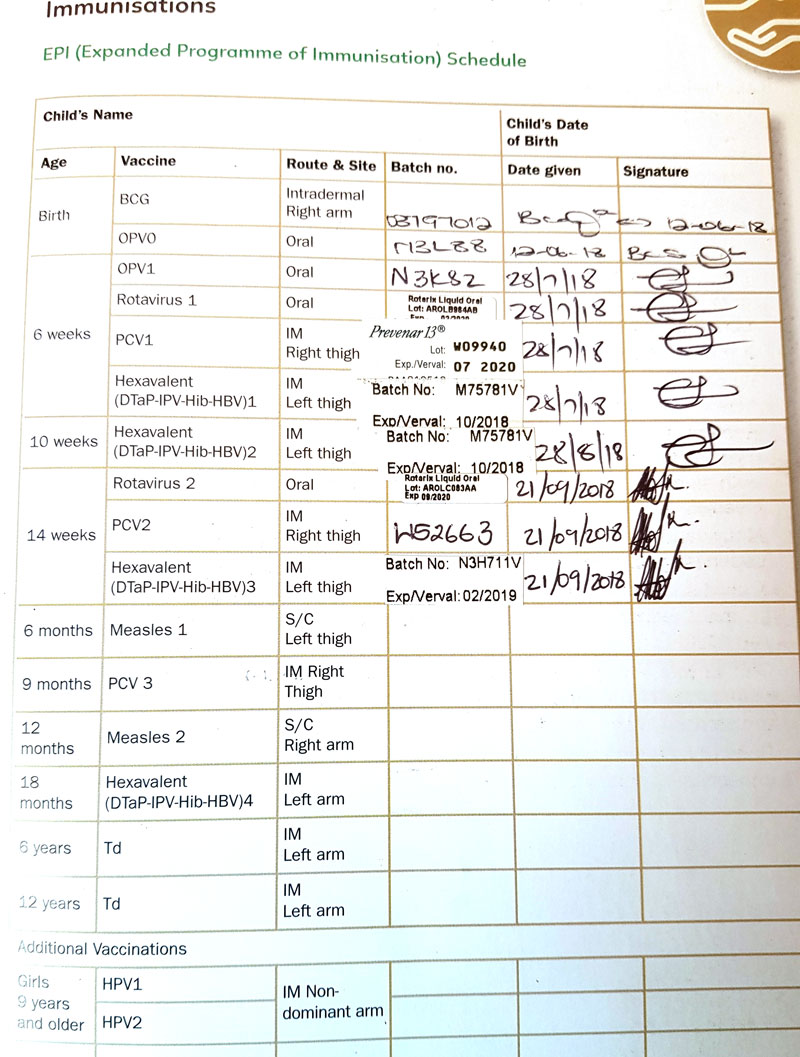 Immunisations
EPI (Expanded Programme of Immunisation) Schedule
Child's Name
Child's Date
of Birth
Age Vaccine Route & Site Batch no. Date given Signature
Birth
BCG Intradermal
Right arm 12-06-18
OPV0 Oral N3L88 12-06-18
6 weeks
OPV1 Oral N3K82 28/7/18
Rotavirus 1 Oral Rotarix Liquid Oral
Lot: AROLB984AB 28/7/18
Exp 02/2020
PCV1 IM
Right thigh Prevenar 13®
Lot: W09940
Exp./Verval: 07 2020 28/7/18
Hexavalent
(DTaP-IPV-Hib-HBV)1 IM
Left thigh Batch No: M75781V
Exp/Verval: 10/2018 28/7/18
10 weeks Hexavalent
(DTaP-IPV-Hib-HBV)2 IM
Left thigh Batch No: M75781V
Exp/Verval: 10/2018 28/8/18
14 weeks
Rotavirus 2 Oral Rotarix Liquid Oral
Lot: AROLC083AA
Exp 09/2020 21/09/2018
PCV2 IM
Right thigh W52663 21/09/2018
Hexavalent
(DTaP-IPV-Hib-HBV)3 IM
Left thigh Batch No: N3H711V
Exp/Verval: 02/2019 21/09/2018
6 months Measles 1 S/C
Left thigh
9 months PCV 3 IM Right
Thigh
12
months Measles 2 S/C
Right arm
18
months Hexavalent
(DTaP-IPV-Hib-HBV)4 IM
Left arm
6 years Td IM
Left arm
12 years Td IM
Left arm
Additional Vaccinations
Girls
9 years
and older
HPV1
HPV2
IM Non-
dominant arm